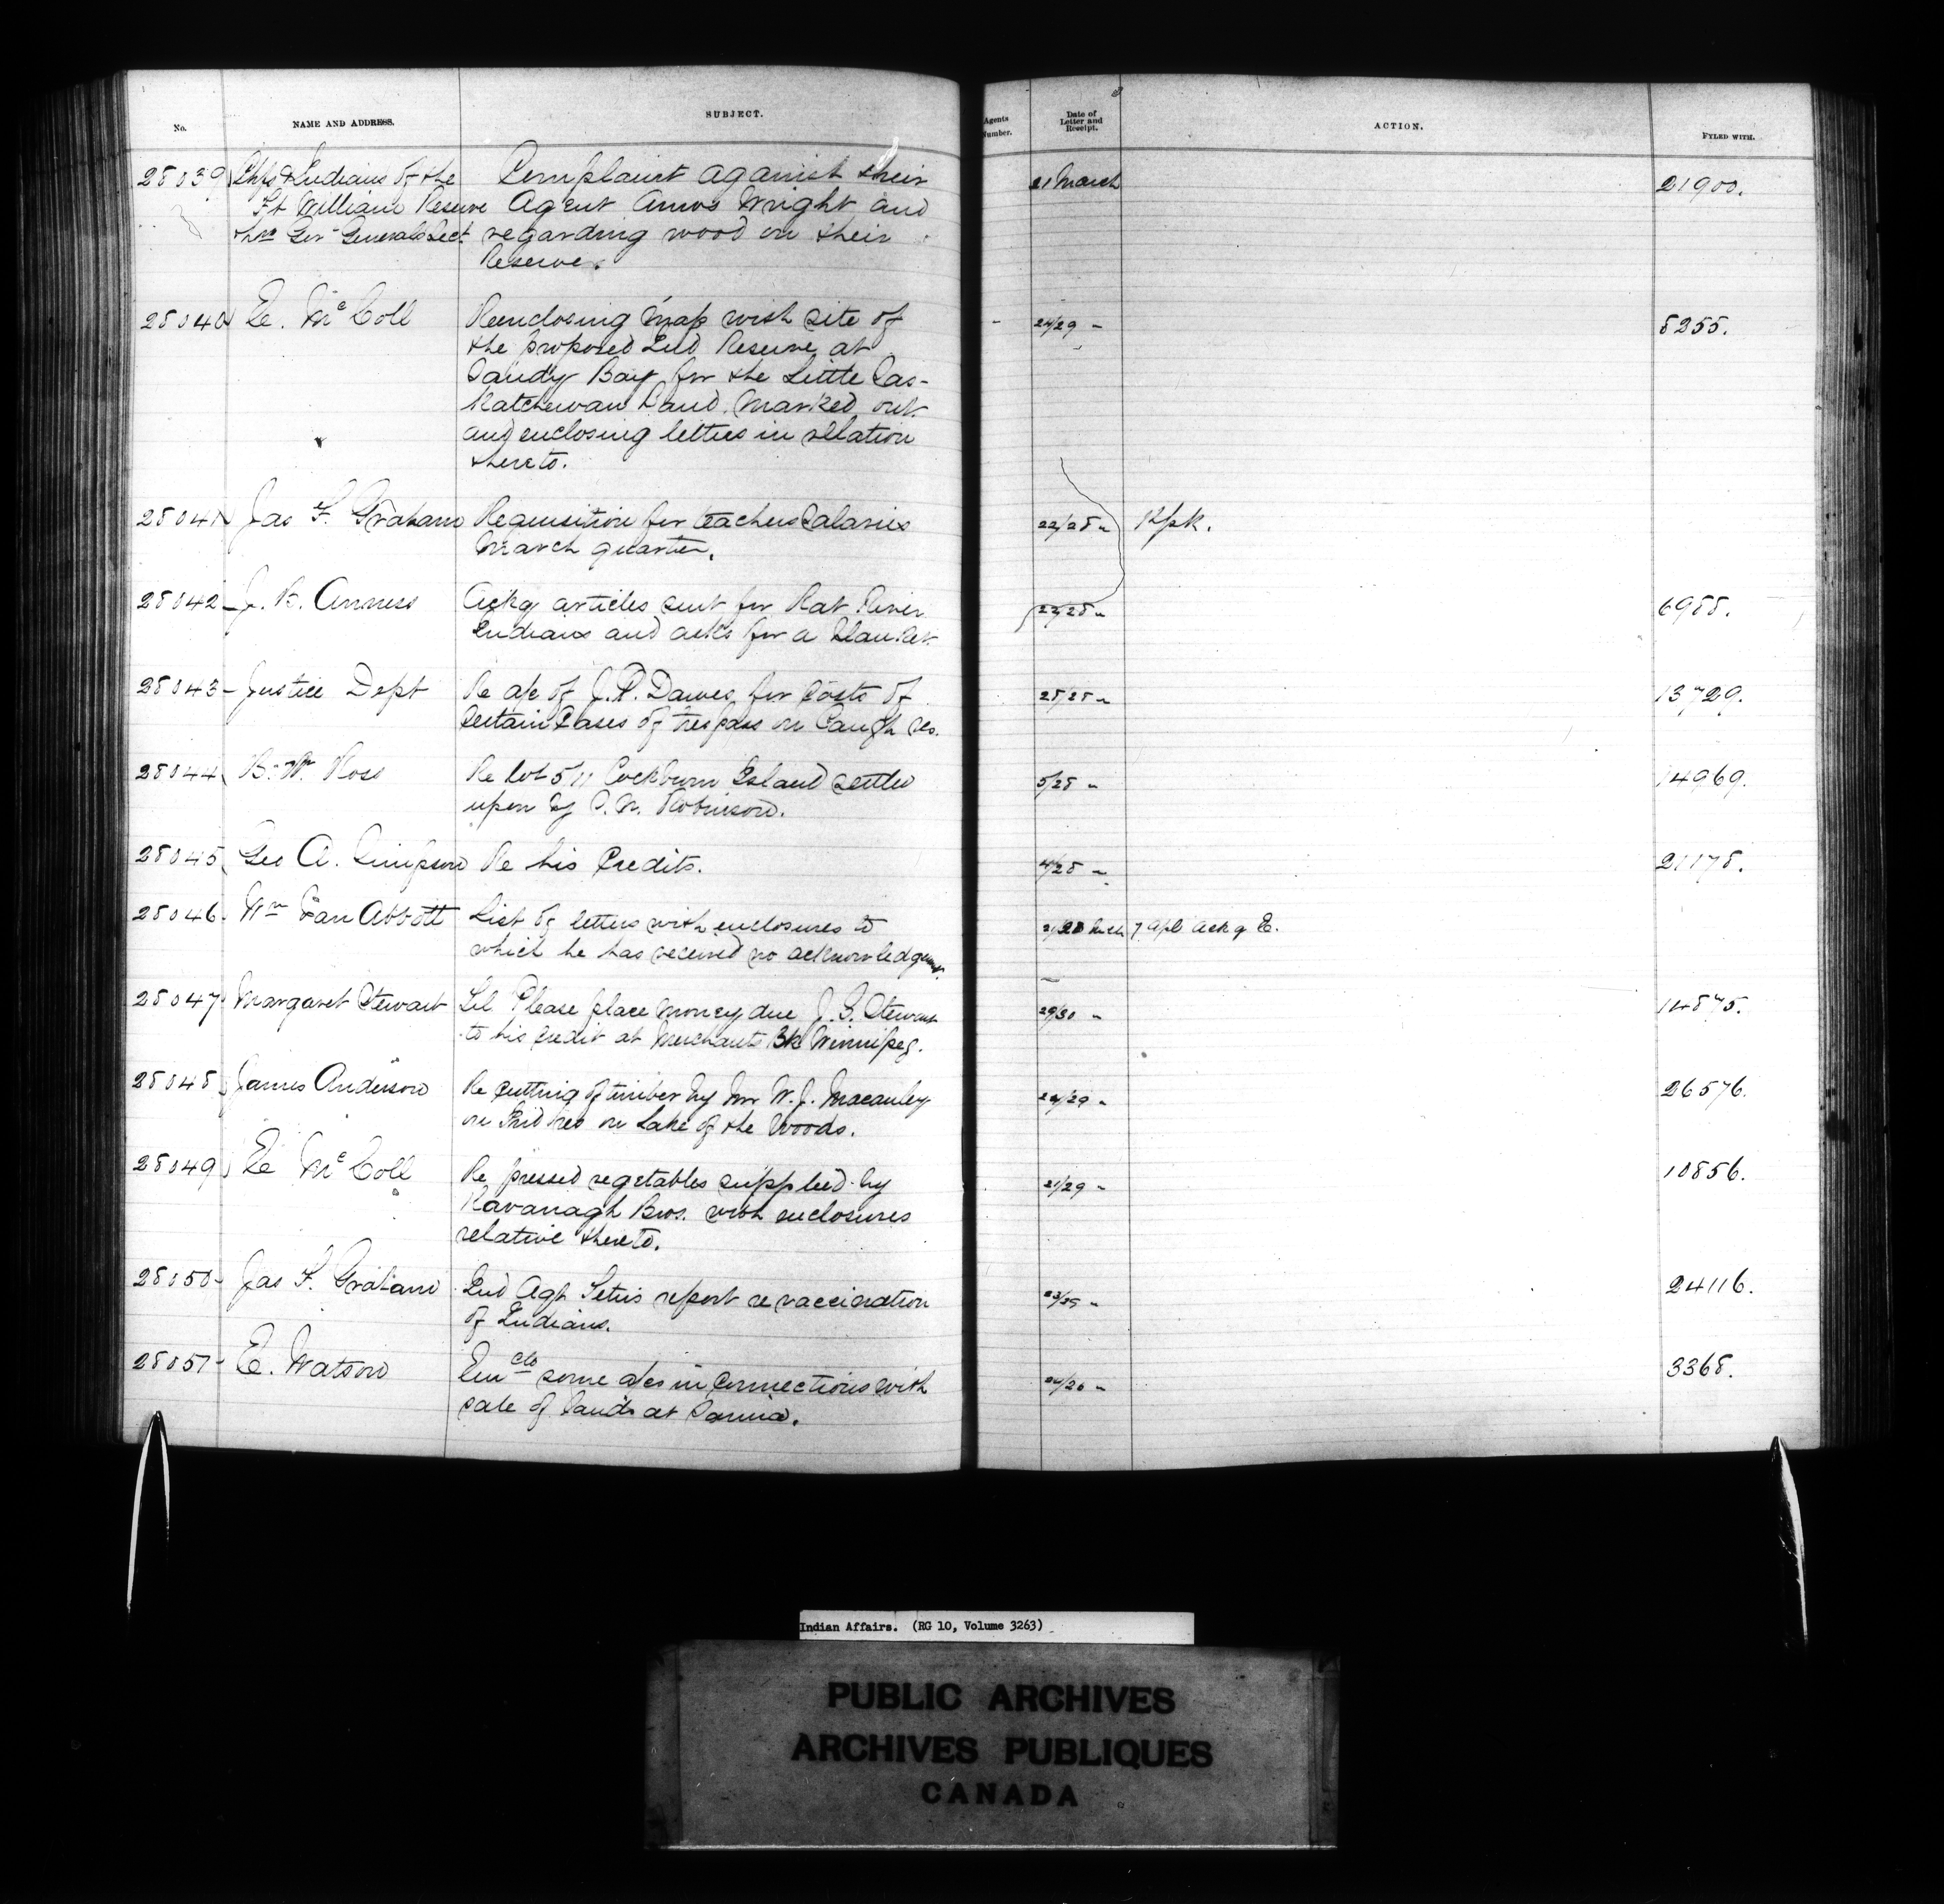 No.
NAME AND ADDRESS.
SUBJECT.
Agents Number.
Date of Letter and Receipt.
ACTION.
FYLED WITH.
28039 Chfs & Indians of the Complaint against their 21 March 21900.
Ft William Reserve Agent Amos Wright and
thro Gov Generals Sect regarding wood on their
Reserve.
28040 E. McColl Reenclosing Map with site of 24/29 " 8255.
the proposed Ind Reserve at
Sandy Bay for the Little Sas-
katchewan Band. Marked out
and enclosing letters in relation
thereto.
28041 Jas F. Graham Requisition for teachers Salaries 22/28 "
March quarter.
28042 J. B. Anness Ackg articles sent for Rat River 6988.
Indians and asks for a blanket.
28043 Justice Dept Re a/c of J.P. Dawes for Costs of 28/28 " 13729.
Certain Cases of trespass on Caugh Res.
28044 B. W. Ross Re lot 5/11 Cockburn Island settled 5/28 " 14969.
upon by Robinson.
28045 Geo A. Simpson Re his Credits. 4/28 " 21178.
28046 Wm Van Abbott List of letters with enclosures to 7 Apl Ackg E.
which he has received no acknowledgemt.
28047 Margaret Stewart Tel Please place money due J. S. Stewart 29/30 " 14875.
to his credit at Merchants Bk Winnipeg.
28048 James Anderson Re Cutting of timber by Mr W. J. Macauley 24/29 " 26576.
on Ind Res on Lake of the Woods.
28049 E McColl Re pressed vegetables supplied by 21/29 " 10856.
Kavanagh Bros. with enclosures
relative thereto.
28050 Jas F. Graham Ind Agt report re vaccination 24116.
of Indians.
28051 E. Watson Enclo some a/cs in Connections with 3368.
sale of lands at Sarnia.
Indian Affairs. (RG 10, Volume 3263)
PUBLIC ARCHIVES
ARCHIVES PUBLIQUES
CANADA